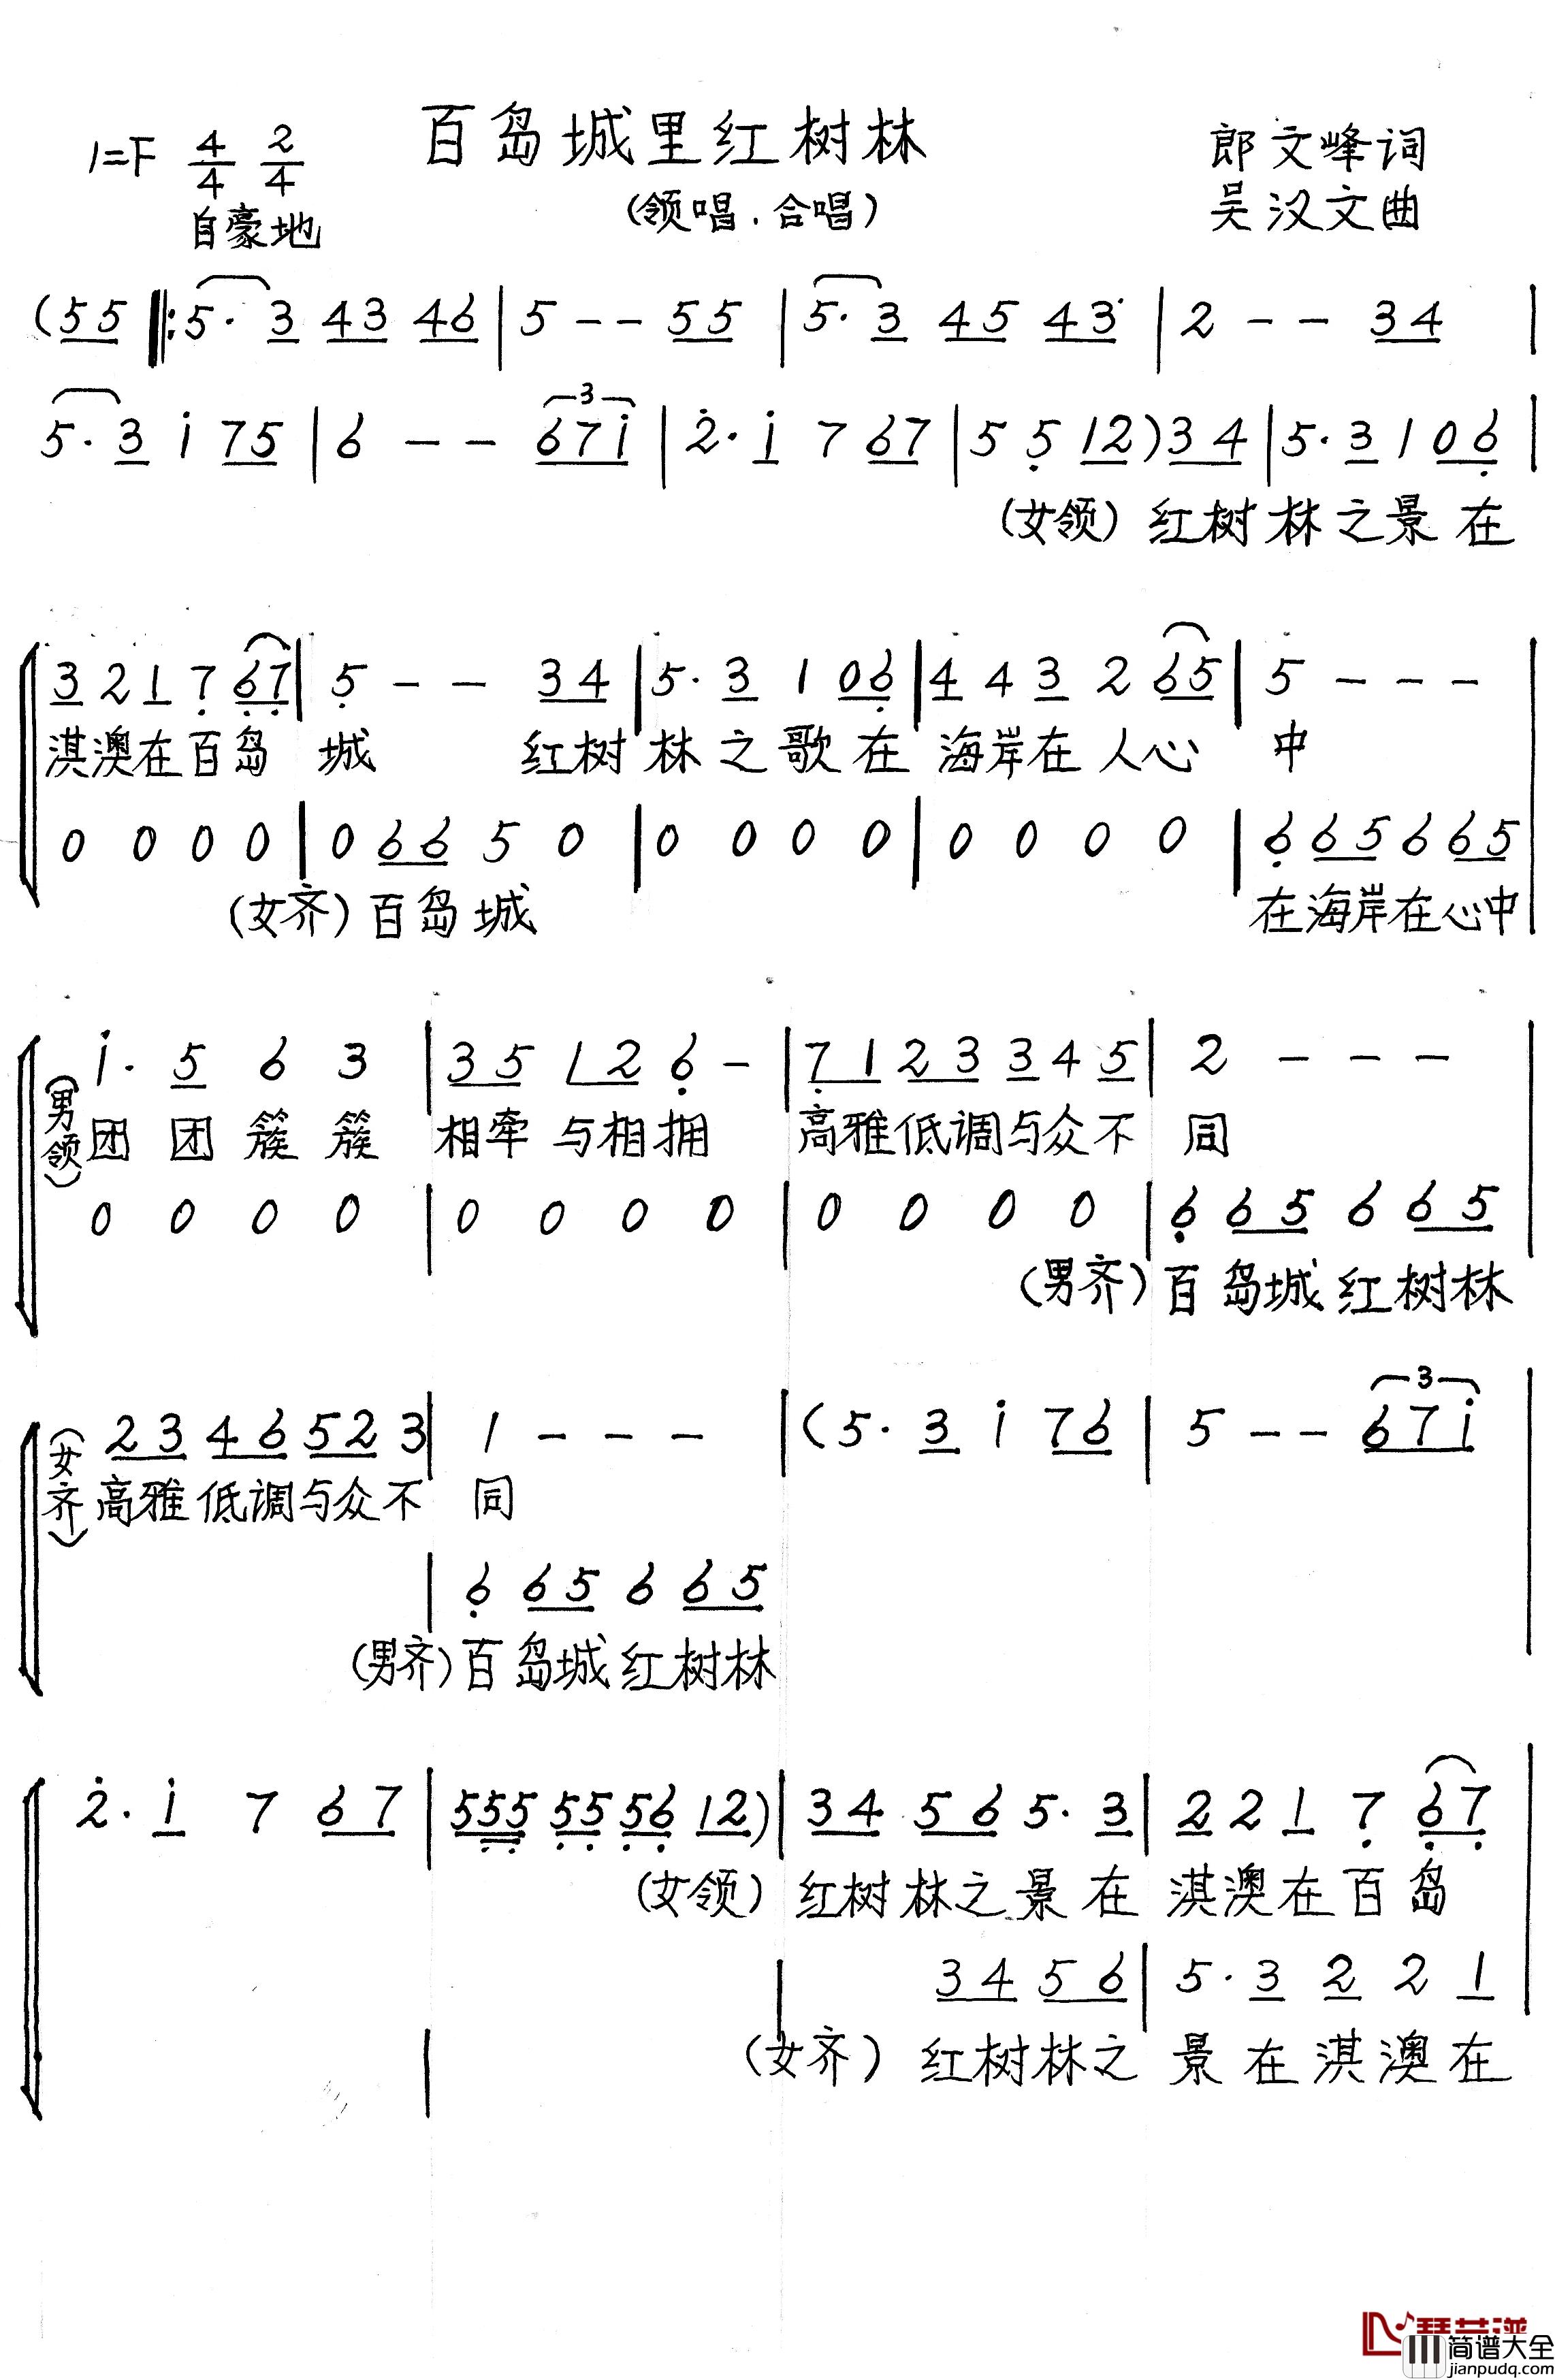 百岛城里红树林
1=F 4/4 2/4
郎文峰词
自豪地
(领唱.合唱)
吴汉文曲
(55 ‖: 5· 3 43 46 | 5 - - 55 | 5· 3 45 43 | 2 - - 34 |
5· 3 i 75 | 6 - - 67i | 2̇· i 7 67 | 5 5̣ 12) 34 | 5· 3 1 06̣ |
(女领) 红树林之景在
3 2 1 7̣ 6̣7̣ | 5̣ - - 34 | 5· 3 1 06̣ | 4 4 3 2 65 | 5 - - -
淇澳在百岛 城 红树林之歌在 海岸在人心 中
0 0 0 0 | 0 66 5 0 | 0 0 0 0 | 0 0 0 0 | 6̣ 65 6 65
(女齐) 百岛城 在海岸在心中
i· 5 6 3 | 35 12 6̣ - | 7̣1 23 3 4 5 | 2 - - -
(男领) 团团簇簇 相牵与相拥 高雅低调与众不 同
0 0 0 0 | 0 0 0 0 | 0 0 0 0 | 6̣ 65 6 65
(男齐) 百岛城红树林
23 46 52 3 | 1 - - - | (5· 3 i 76 | 5 - - 67i
(女齐) 高雅低调与众不 同
| 6̣ 65 6 65
(男齐) 百岛城红树林
2̇· i 7 67 | 5̣5̣5̣ 5̣5̣ 5̣6̣ 12) | 34 56 5· 3 | 2 2 1 7̣ 6̣7̣
(女领) 红树林之景在 淇澳在百岛
| 34 56 | 5· 3 2 2 1
(女齐) 红树林之 景在淇澳在
琴艺谱
简谱大全
jianpudq.com